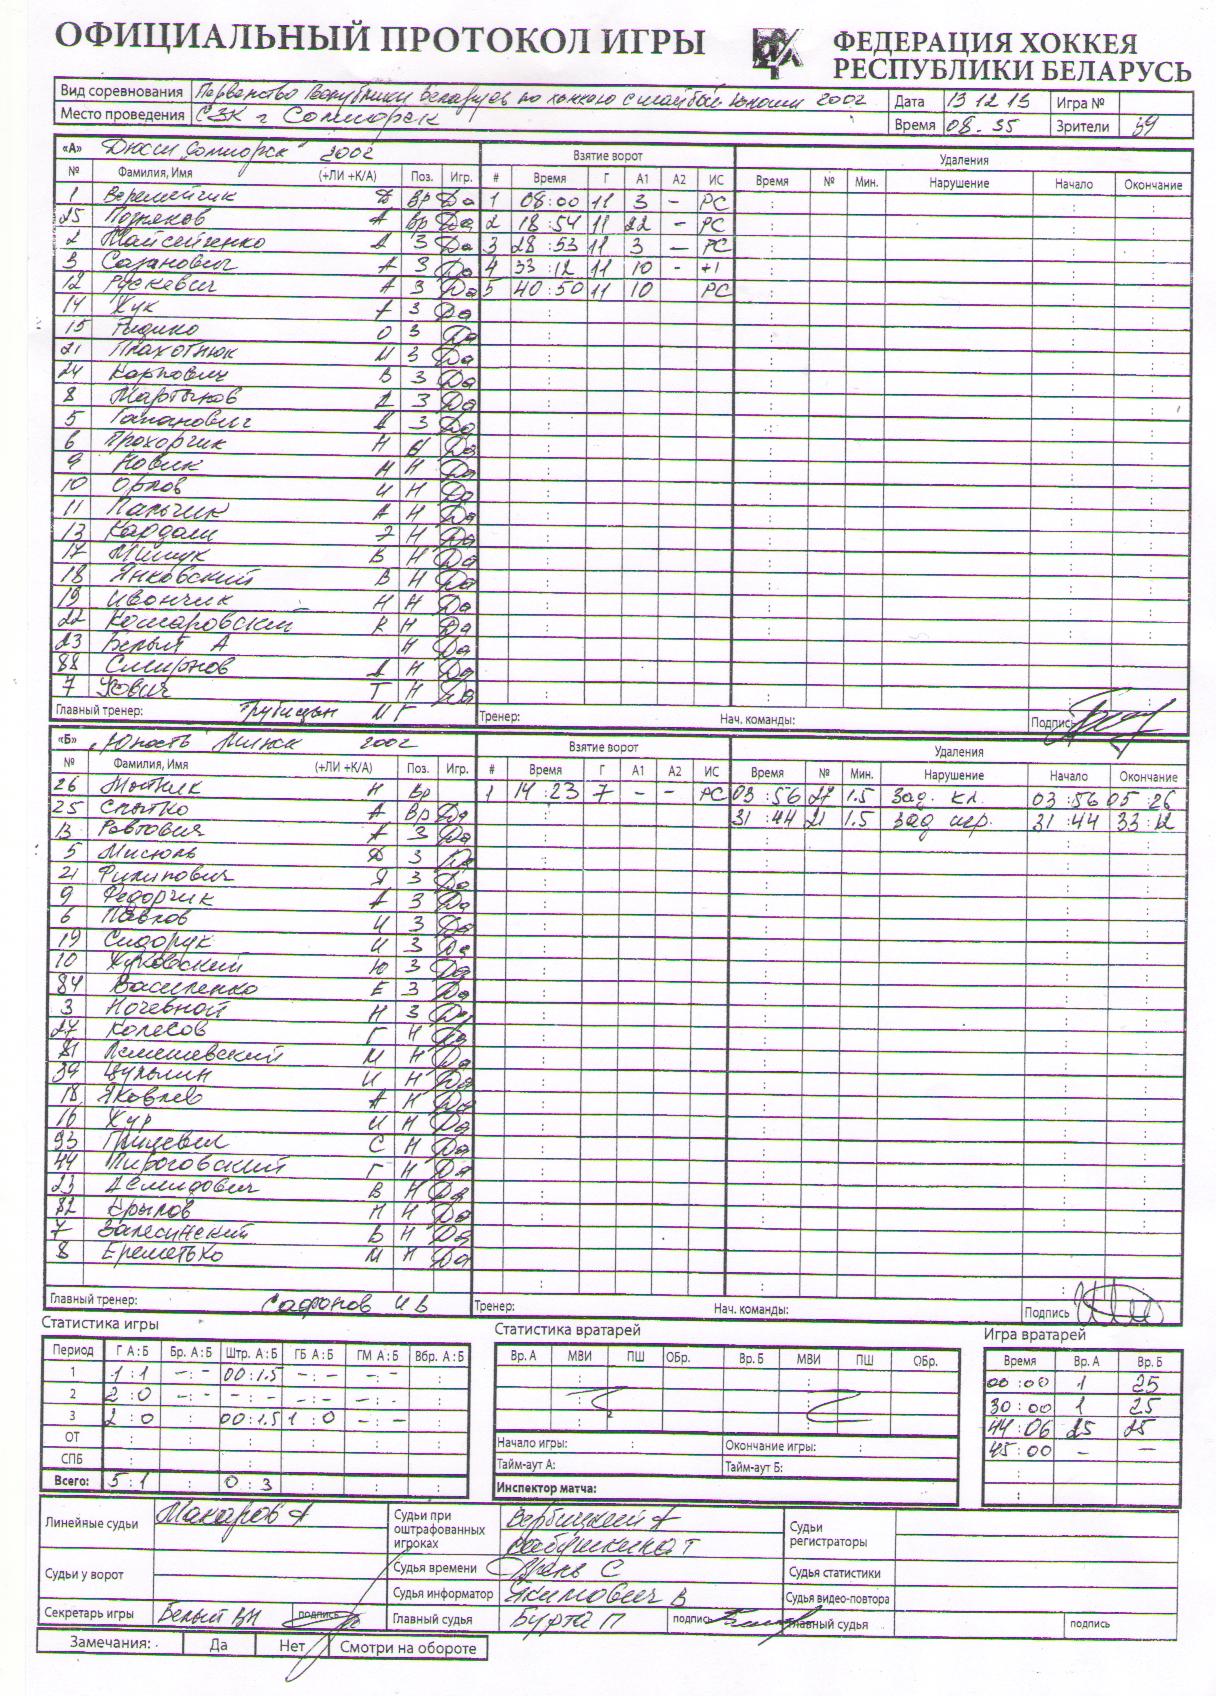 ОФИЦИАЛЬНЫЙ ПРОТОКОЛ ИГРЫ
ФЕДЕРАЦИЯ ХОККЕЯ
РЕСПУБЛИКИ БЕЛАРУСЬ
Вид соревнования Первенство Республики Беларусь по хоккею с шайбой юноши 2002 Дата 13 12 15 Игра №
Место проведения СЗК г Солигорск Время 08-35 Зрители 39
«А» Дюсш Солигорск 2002 Взятие ворот Удаления
№ Фамилия, Имя (+ЛИ +К/А) Поз. Игр. # Время Г А1 А2 ИС Время № Мин. Нарушение Начало Окончание
1 Веремейчик Д Вр Да 1 08:00 11 3 - РС
25 Позняков А Вр Да 2 18:54 11 22 - РС
2 Майсейченко А 3 Да 3 28:53 11 3 - РС
3 Сазанович А 3 Да 4 33:12 11 10 - +1
12 Рускевич А 3 Да 5 40:50 11 10 РС
14 Жук 3 Да
15 О 3 Да
21 Плахотнюк М 3 Да
24 Карпович В 3 Да
8 Мартынов Д 3 Да
5 Гапанович Д 3 Да
6 Прохорчик Н Да
9 Новик М Н Да
10 Орлов И Н Да
11 Пальчик А Н Да
13 Кардаш Э Н Да
17 Мишук В Н Да
18 Янковский В Н Да
19 Ивончик Н Н Да
22 Комаровский К Н Да
23 Белый А Н Да
88 Смирнов Д Н Да
7 Т Н Да
Главный тренер: Трубицын М Г Тренер: Нач. команды: Подпись
«Б» "Юность" Минск 2002 Взятие ворот Удаления
№ Фамилия, Имя (+ЛИ +К/А) Поз. Игр. # Время Г А1 А2 ИС Время № Мин. Нарушение Начало Окончание
26 Н Вр 1 14:23 7 - - РС 03:56 27 1.5 Зад. кл. 03:56 05:26
25 Спытко А Вр Да 31:44 21 1.5 Зад игр. 31:44 33:12
13 Равтович А 3 Да
5 Мисюль Д 3 Да
21 Филипович Я 3 Да
9 Федорчик А 3 Да
6 Павлов И 3 Да
19 Сидорук И 3 Да
10 Жуковский Ю 3 Да
84 Василенко Е 3 Да
3 Ночевной Н 3 Да
27 Колесов Г Н Да
81 Лемешевский М Н Да
39 Цульпин И Н Да
18 Яковлев А Н Да
16 Жур И Н Да
93 С Н Да
44 Пироговский Г Н Да
23 Демидович В Н Да
82 Крылов Н Н Да
7 Залесинский В Н Да
8 Ереметько М Н Да
Главный тренер: Сафонов И В Тренер: Нач. команды: Подпись
Статистика игры Статистика вратарей Игра вратарей
Период Г А:Б Бр. А:Б Штр. А:Б ГБ А:Б ГМ А:Б Вбр. А:Б Вр. А МВИ ПШ ОБр. Вр. Б МВИ ПШ ОБр. Время Вр. А Вр. Б
1 1:1 -:- 00:1.5 -:- -:- 00:00 1 25
2 2:0 -:- -:- -:- -:- 30:00 1 25
3 2:0 : 00:1.5 1:0 -:- 44:06 25 25
ОТ Начало игры: : Окончание игры: : 45:00 - -
СПБ Тайм-аут А: Тайм-аут Б:
Всего: 5:1 : 0:3 Инспектор матча:
Линейные судьи Макаров А Судьи при оштрафованных игроках Вербицкий А Судьи регистраторы
Бабушкина Т
Судьи у ворот Судья времени С Судья статистики
Судья информатор Якимович В Судья видео-повтора
Секретарь игры Белый ВН подпись Главный судья Бурта П подпись Главный судья подпись
Замечания: Да Нет Смотри на обороте